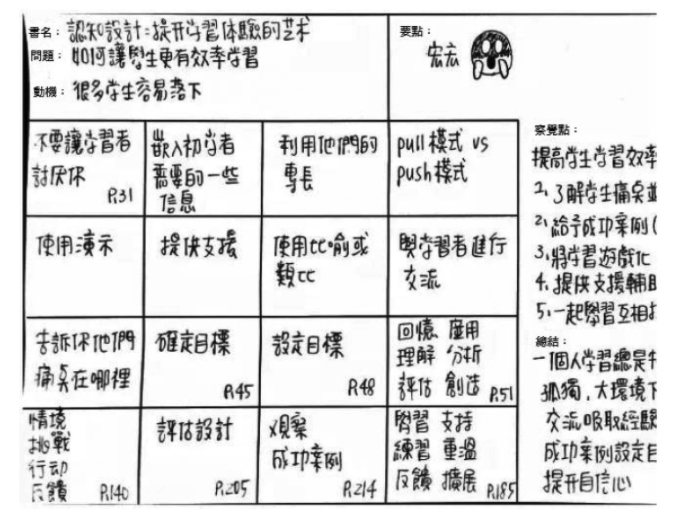 書名：認知設計：提升学習体驗的艺术
問題：如何讓學生更有效率学習
動機：很多学生容易落下
要點：
宏宏
不要讓学習者
討厌你
P.31
嵌入初学者
需要的一些
信息
利用他們的
專長
pull 模式 vs
push 模式
使用演示
提供支援
使用比喻或
類比
與学習者進行
交流
告訴你他們
痛点在哪裡
確定目標
P.45
設定目標
P.48
回憶 應用
理解 分析
評估 創造 P.51
情境
挑戰
行动
反饋 P.140
評估設計
P.205
观察
成功案例
P.214
學習 支持
練習 重溫
反饋 擴展 P.185
察覺點：
提高学生学習效率
1. 了解学生痛点並
2. 給予成功案例(
3. 將学習遊戲化
4. 提供支援輔助
5. 一起學習互相
總結：
一個人学習總是
孤獨，大環境下
交流吸取經驗
成功案例設定目
提升自信心